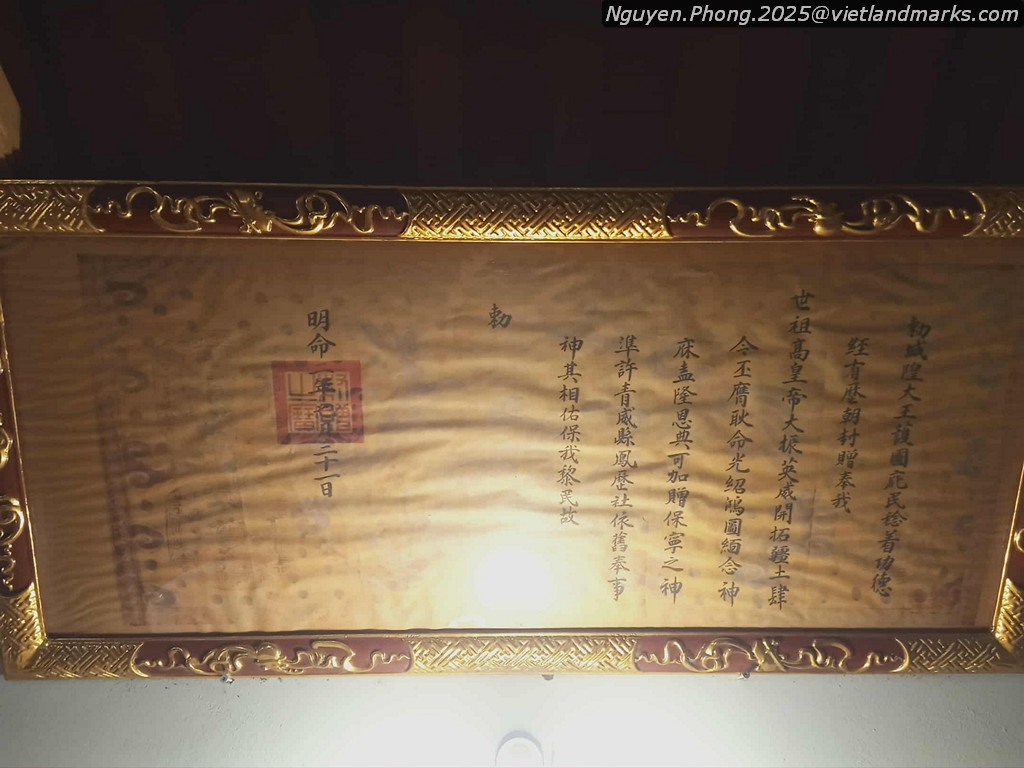 Nguyen.Phong.2025@vietlandmarks.com
勅城隍大王護國庇民稔著功德
經有歴朝封贈奉我
世祖高皇帝大振英威開拓疆土肆
今丕膺耿命光紹鴻圖緬念神
庥盍隆恩典可加贈保寧之神
準許青威縣鳳歴社依舊奉事
神其相佑保我黎民故
勅
明命年二十一日